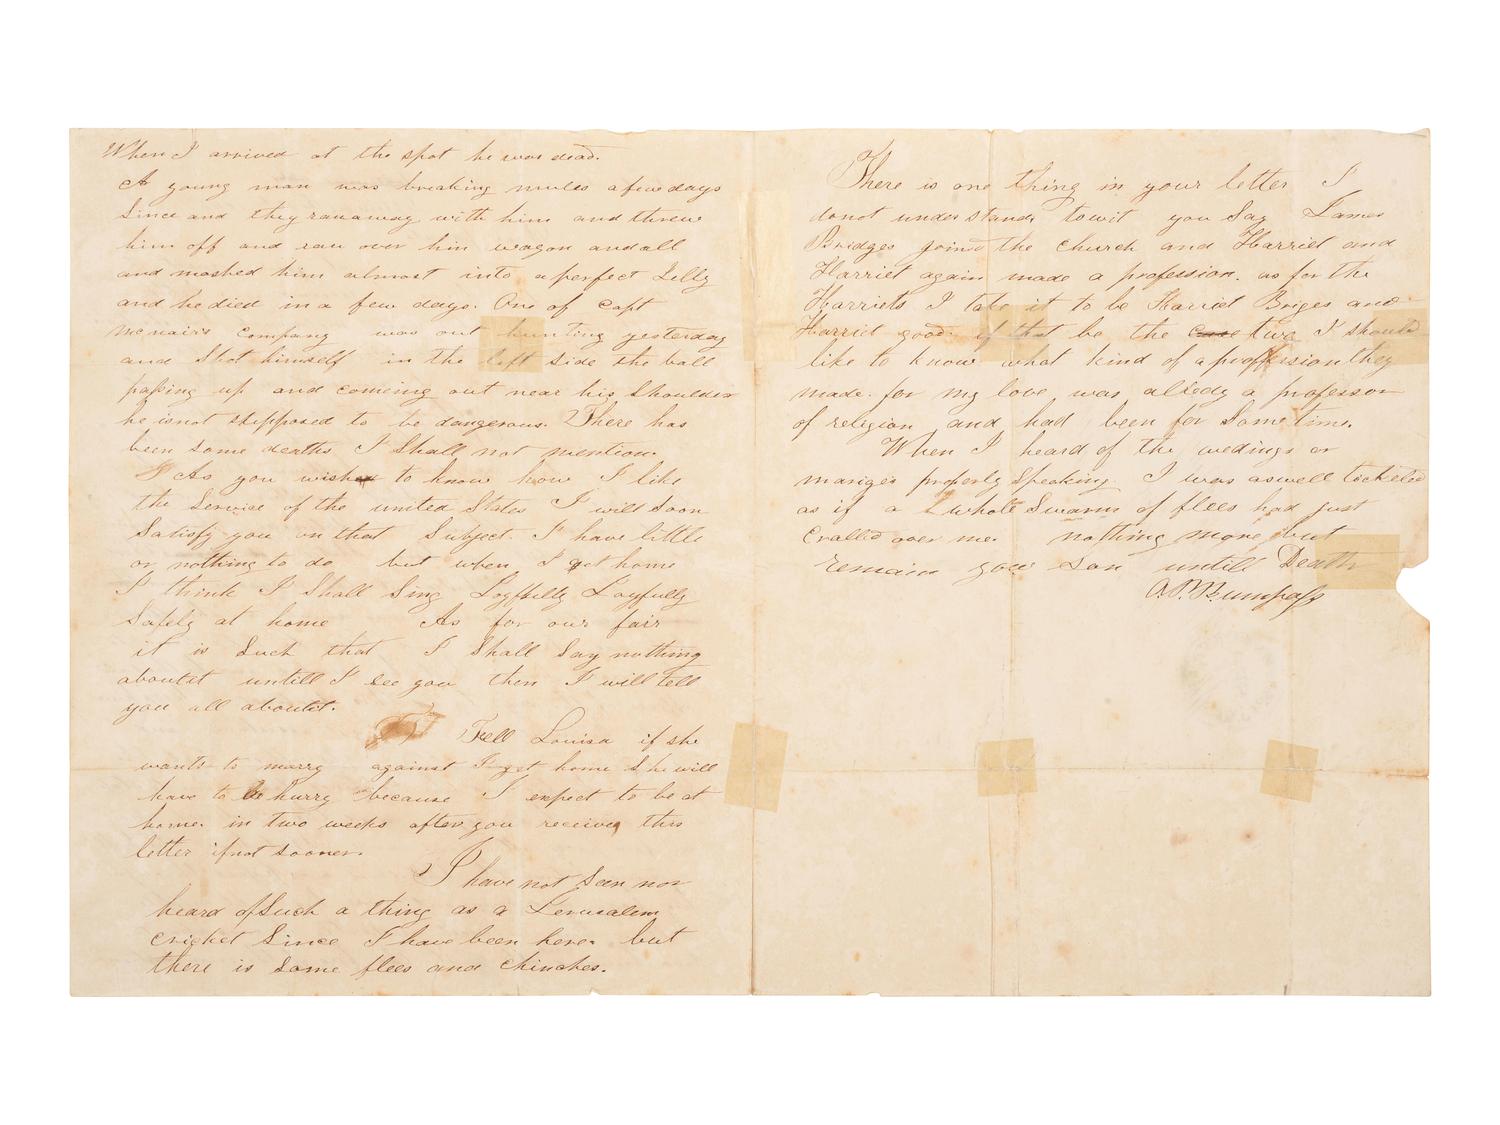 When I arrived at the spot he was dead.
A young man was breaking mules a few days
Since and they ran away with him and threw
him off and ran over him wagon and all
and mashed him almost into a perfect Jelly
and he died in a few days. One of Capt
McNairs Company was out hunting yesterday
and Shot himself in the left side the ball
passing up and comeing out near his Shoulder
he is not supposed to be dangerous. There has
been some deaths I Shall not mention.
As you wish to know how I like
the Service of the united States I will Soon
Satisfy you on that Subject I have little
or nothing to do but when I get home
I think I Shall Sing Joyfully Joyfully
Safely at home As for our fair
it is Such that I Shall Say nothing
aboutit untill I see you then I will tell
you all aboutit.
Tell Louisa if she
wants to marry against I get home She will
have to be hurry because I expect to be at
home in two weeks after you receive this
letter if not sooner.
I have not Seen nor
heard of Such a thing as a Jerusalem
cricket Since I have been here. but
there is Some flees and chinches.
There is one thing in your letter I
donot understands towit you Say James
Bridges goind the church and Harriet and
Harriet again made a profession. as for the
Harriets I take it to be Harriet Briges and
Harriet good if that be the Case two I should
like to know what kind of a proffession they
made. for my love was alredy a professor
of religion and had been for Some time.
When I heard of the wedings or
mariges properly Speaking I was aswell tickeled
as if a whole Swarm of flees had just
Cralled over me. nothing more but
remain your Son untill Death
A.P. Bumpass